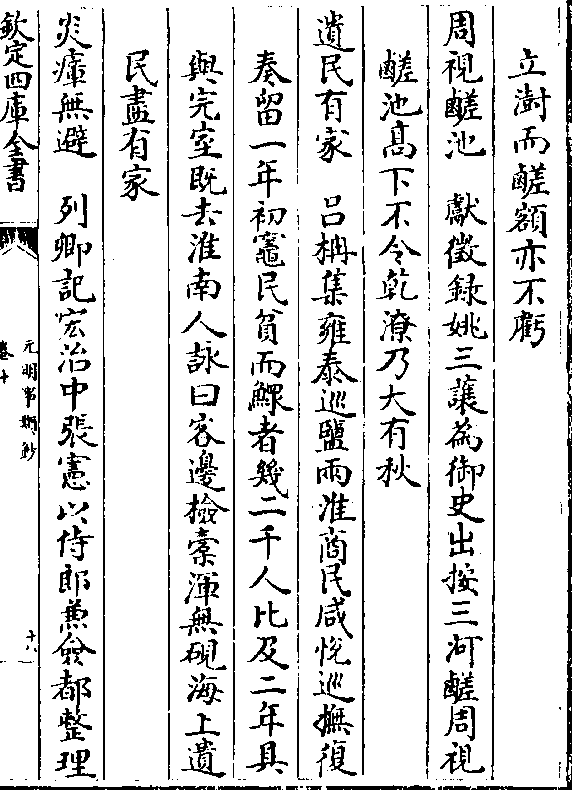 立澍而鹺額亦不虧
周視鹺池　獻徵錄姚三讓為御史出按三河鹺周視
鹺池高下不令乾潦乃大有秋
遺民有家　吕柟集雍泰巡鹽兩淮商民咸悅巡撫復
奏留一年初竈民貧而鰥者幾二千人比及二年具
與完室既去淮南人詠曰客邊檢橐渾無硯海上遺
民盡有家
炎瘴無避　列卿記宏治中張憲以侍郎兼僉都整理
欽定四庫全書
元明事類鈔
卷十
十八